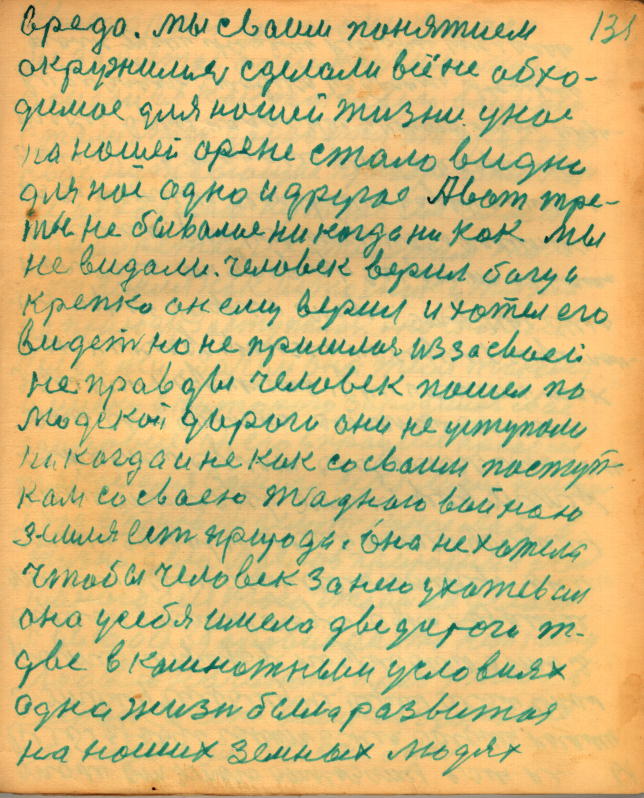 131
вреда. мы сваим понятием
окружился, сделали всё не обхо-
димое для нашей жизни у нас
на нашей арене стало видно
для неё одно и другое А вот тре-
ты не бывалае никогда ни как мы
не видали. человек верил богу и
крепко он ему верил и хотел его
видет но не пришлося из за сваей
не правды человек пошел по
людской дороги они не уступали
никогда и не как со сваим поступ-
кам со сваею жадною вайною
земля ест природа. она не хотела
чтобы человек за нею ухажевал
она у себя имела две дороги ж-
две в комнатным условиях
одна жизн была развитая
на наших земных людях